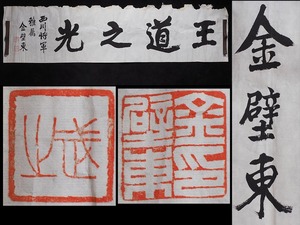 王道之光
西川将軍
雅屬
金璧東
金璧東
金印
璧東